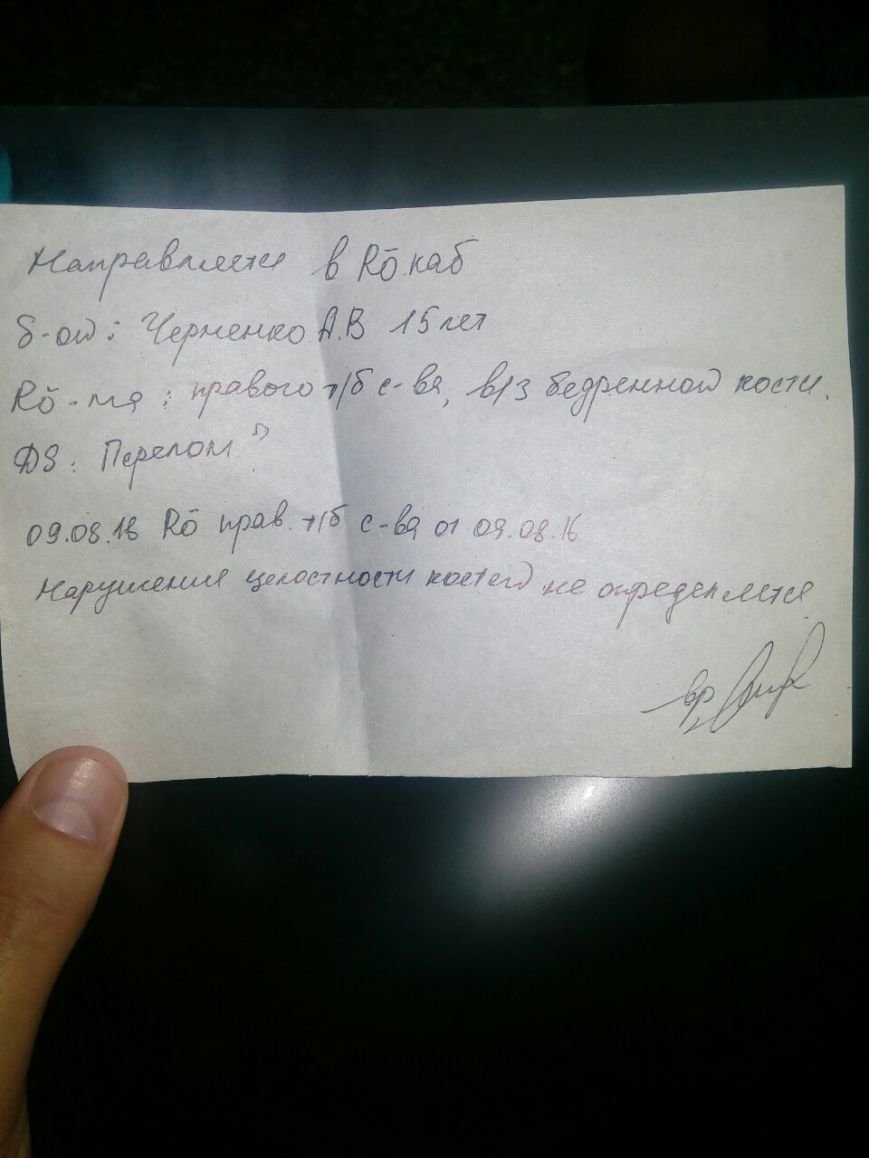 Направляется в Rö каб
б-ой: Черненко А.В 15 лет
Rö-мя: правого т/б с-ва, в/з бедренной кости.
DS: Перелом?
09.08.16 Rö прав. т/б с-ва от 09.08.16
Нарушения целостности костей не определяется
вр.